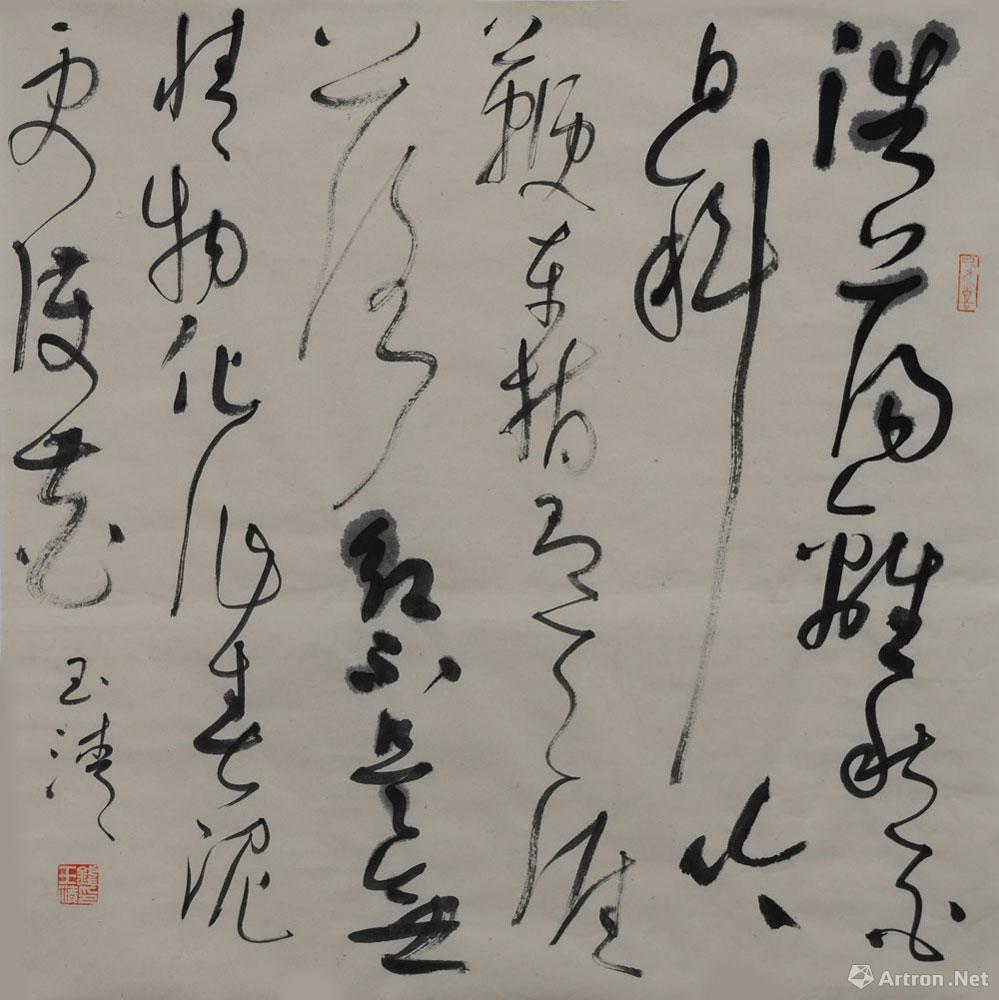 浩蕩離愁白
日斜吟
鞭東指即天涯
落紅不是無
情物化作春泥
更護花
玉清
Artron.Net